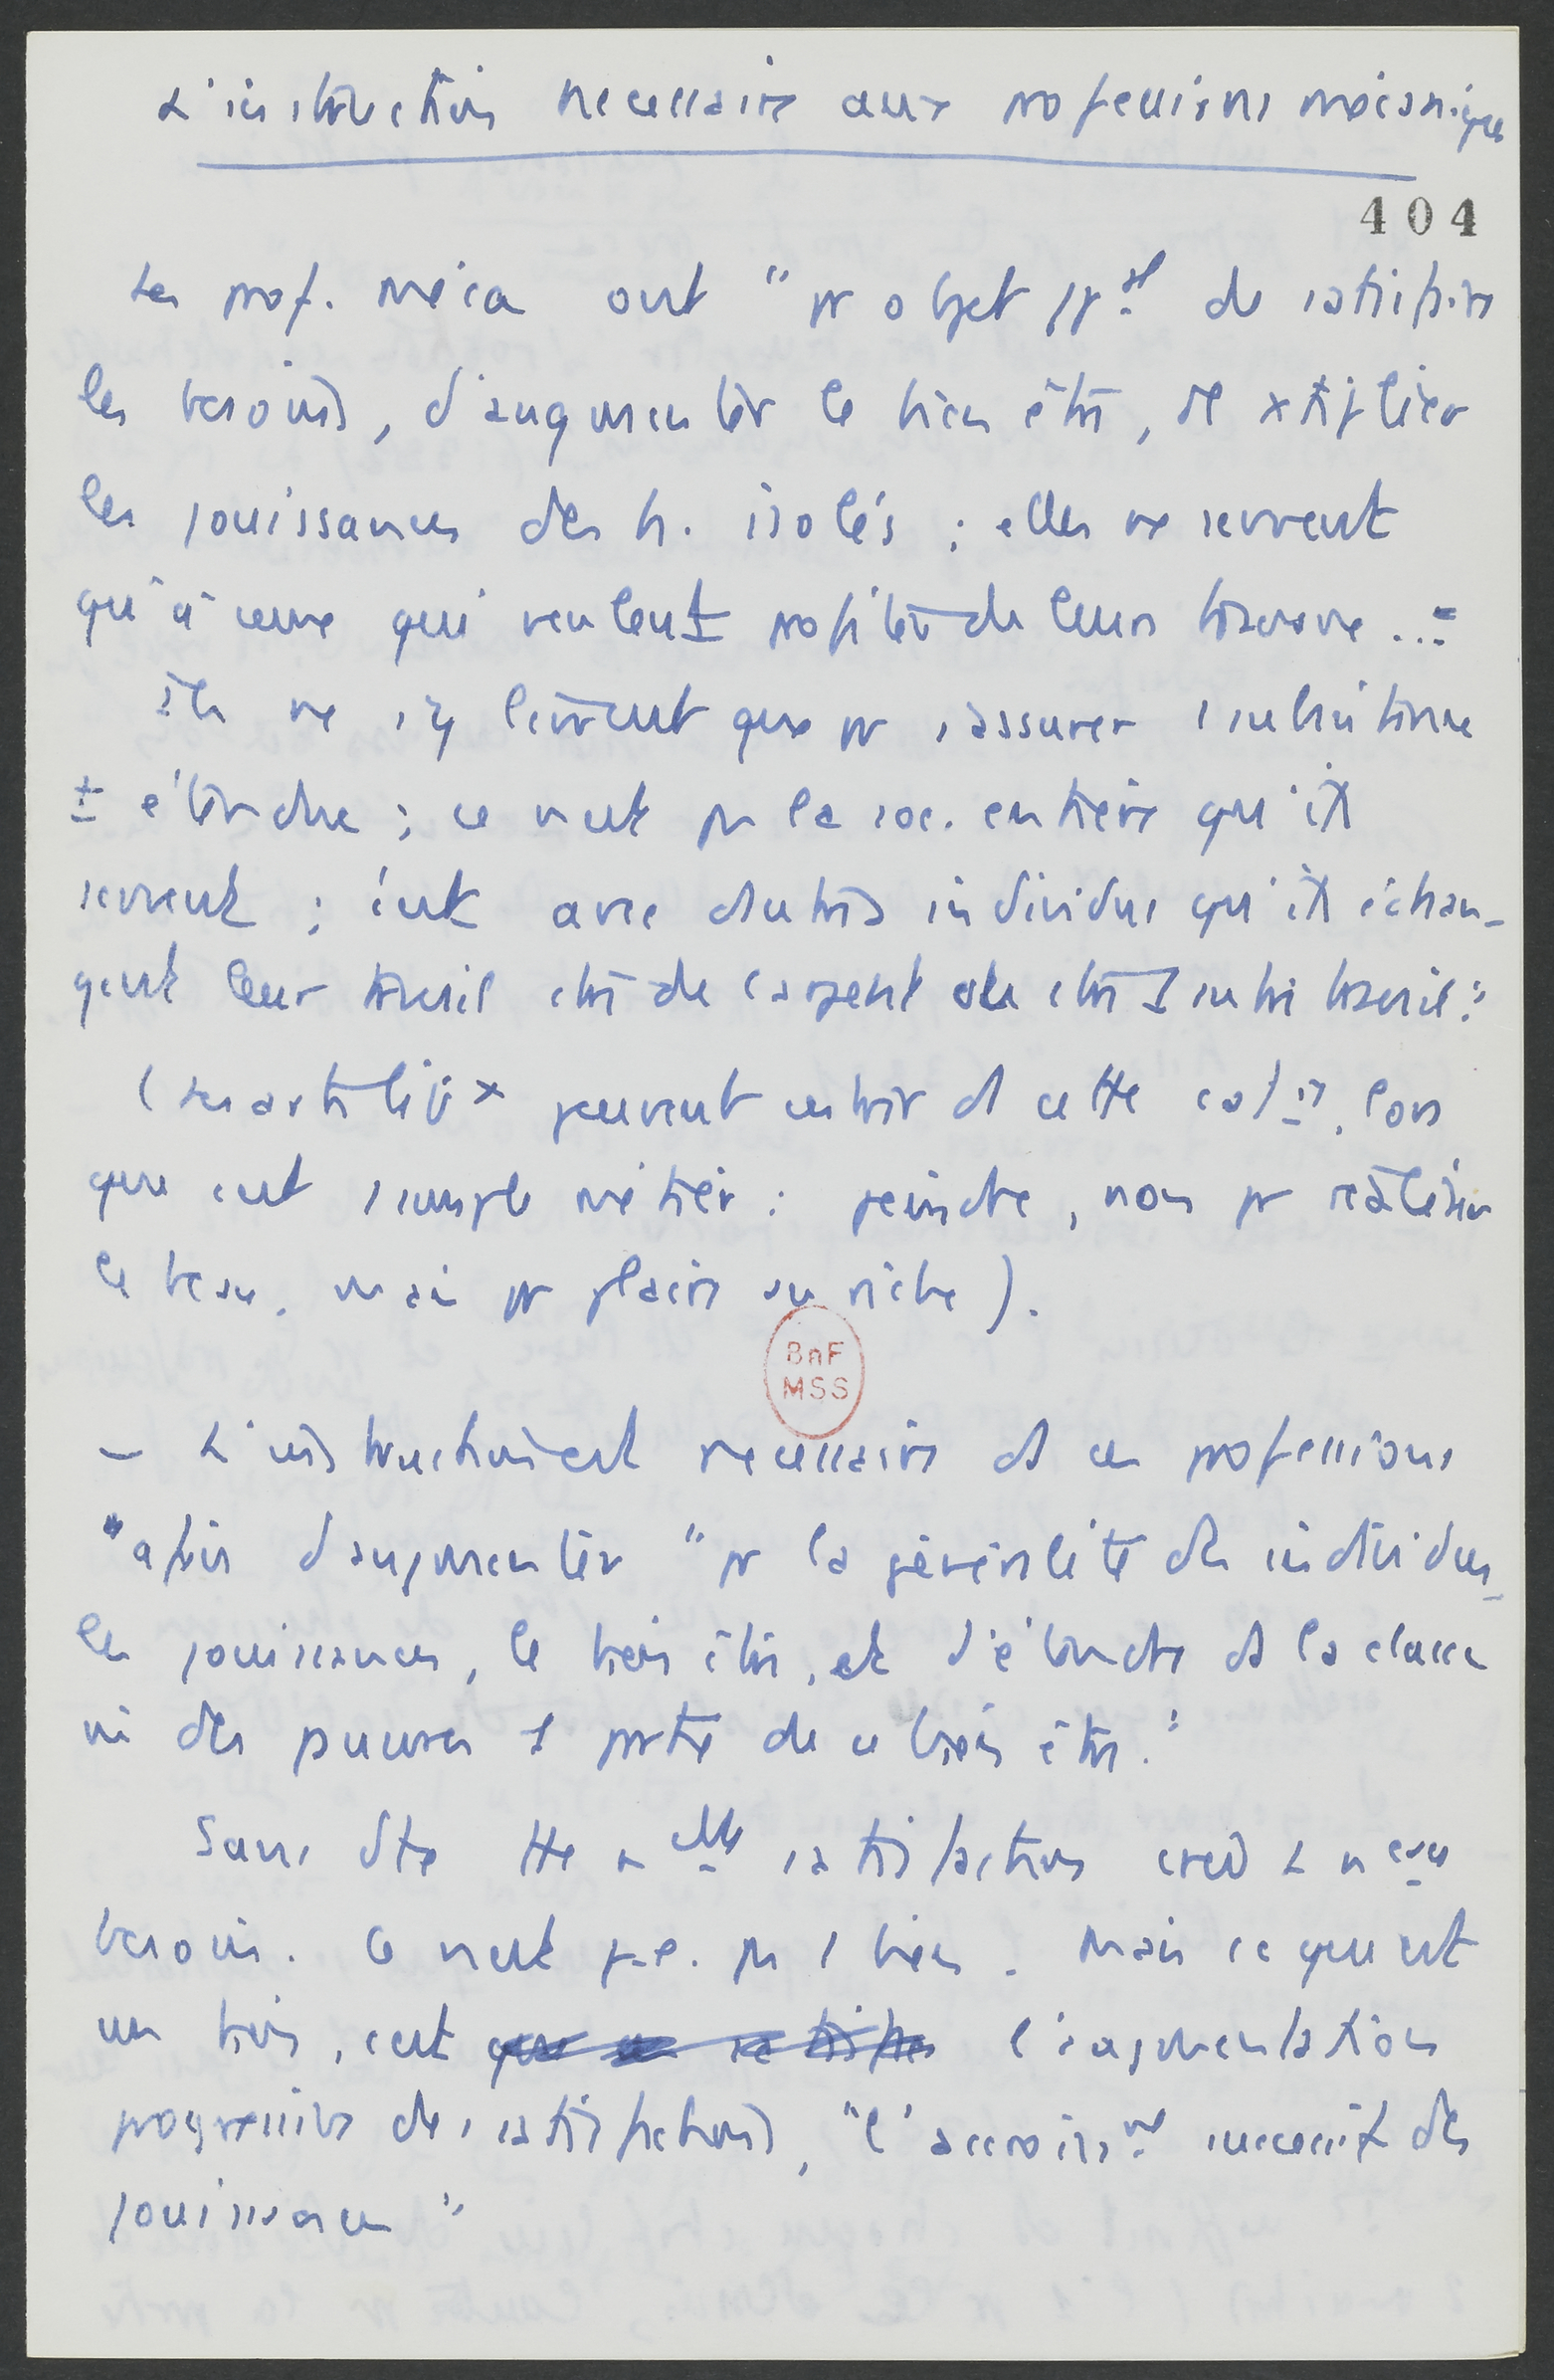 L'instruction necessaire aux professions mécaniques
404
Les prof. méca ont "pr objet ppal de satisfaire
les besoins, d'augmenter le bien être, de xtiplier
les jouissances des h. isolés ; elles ne servent
qu'à ceux qui veulent profiter de leurs travaux ..."
Ils ne s'y livrent que pr s'assurer 1 subsistance
± étendue ; ce n'est pas la soc. entière qu'ils
servent ; c'est avec d'autres individus qu'ils échan-
gent leur travail contre de l'argent ou contre 1 autre travail."
(Les arts libx peuvent entrer ds cette catie, lors
que c'est 1 simple métier : peindre, non pr réaliser
le beau, mais pr plaire au riche).
BnF
MSS
- L'instruction est necessaire ds ces professions
"afin d'augmenter "pr la généralité des individus
les jouissances, le bien être, et d'étendre ds la classe
mê des pauvres 1 partie de ce bien être."
Sans dte tte nelle satisfaction crée 1 neau
besoin. Ce n'est p.e. pas 1 bien. Mais ce qui est
un bien, c'est l'augmentation
progressive des satisfactions, "l'accroisst successif des
jouissances"